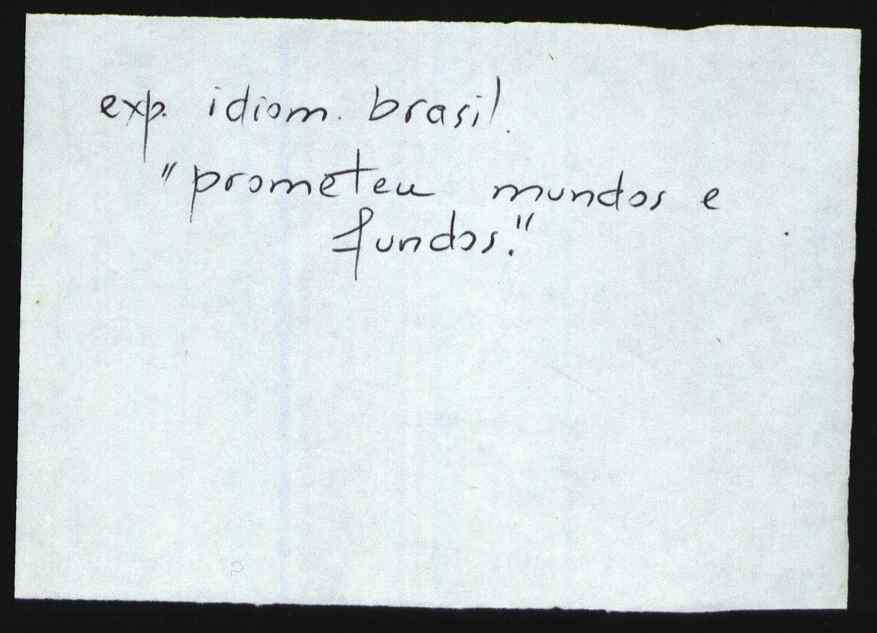 exp. idiom. brasil.
"prometeu mundos e
fundos."